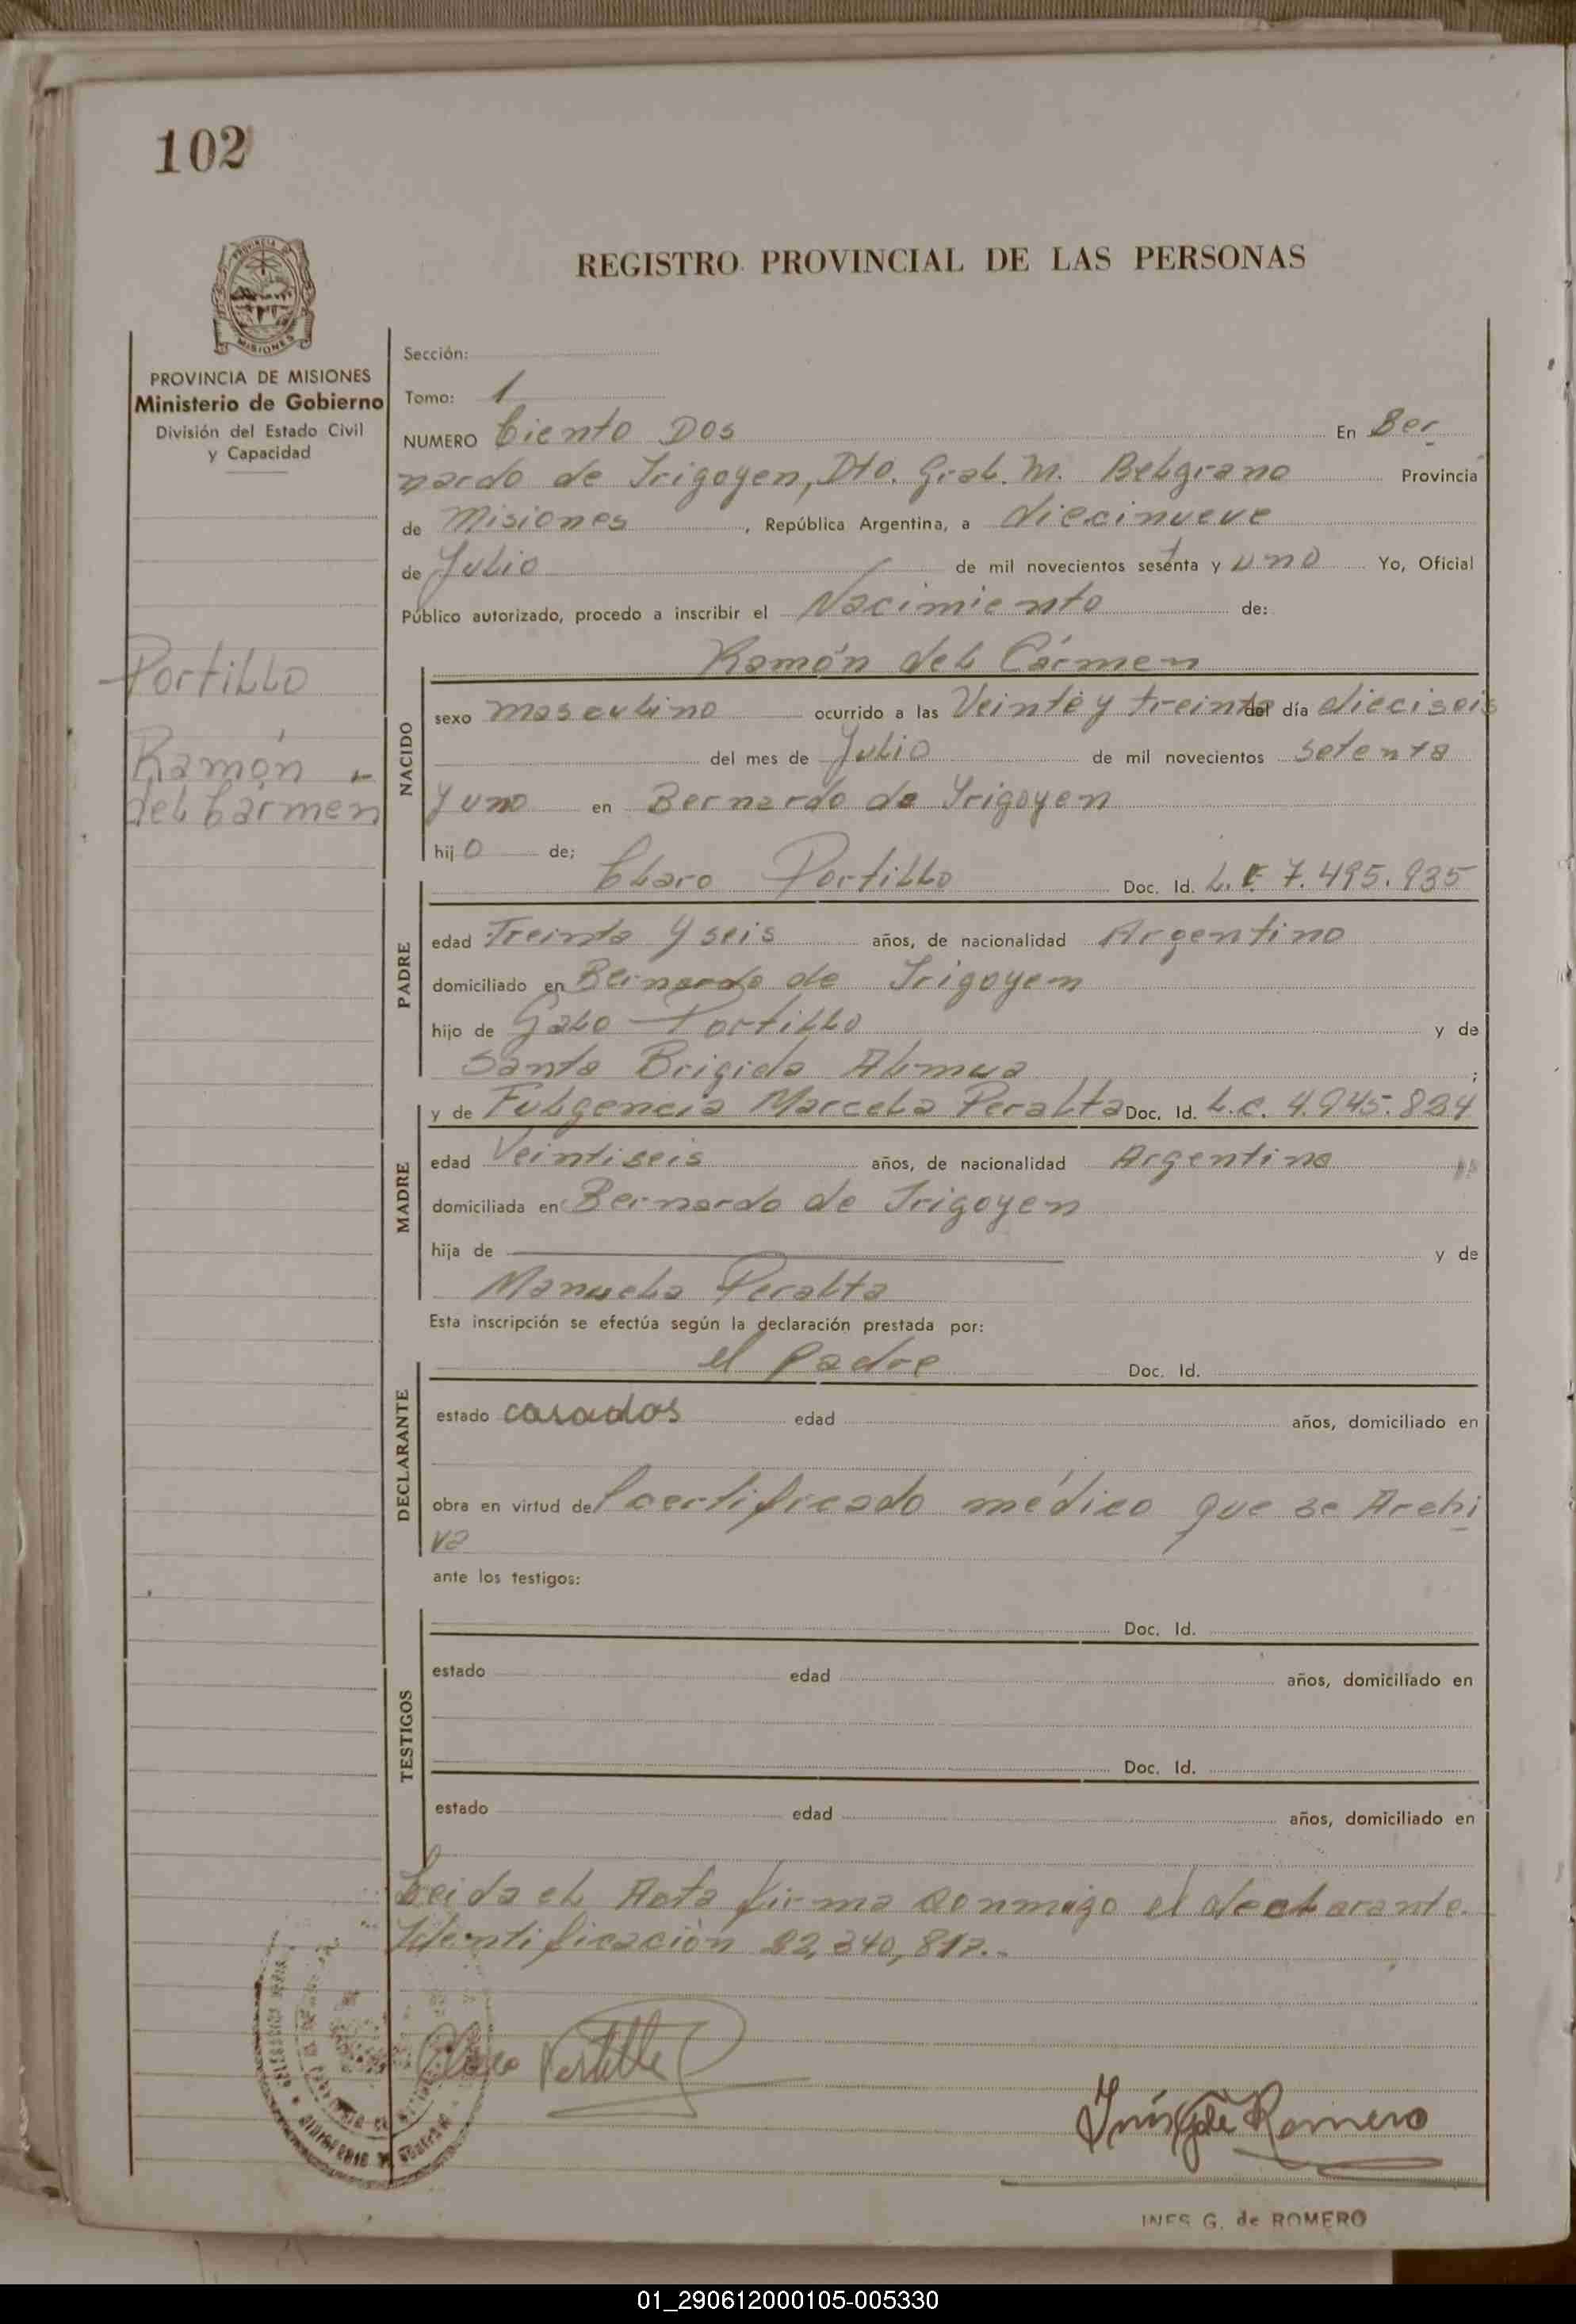 102
REGISTRO PROVINCIAL DE LAS PERSONAS
PROVINCIA DE MISIONES
Ministerio de Gobierno
División del Estado Civil
y Capacidad
Portillo
Ramón
del Cármen
Sección:
Tomo: 1
NUMERO Ciento Dos En Ber
nardo de Irigoyen, Dto. Gral. M. Belgrano Provincia
de Misiones, República Argentina, a diecinueve
de Julio de mil novecientos sesenta y uno Yo, Oficial
Público autorizado, procedo a inscribir el Nacimiento de:
Ramón del Cármen
NACIDO
sexo masculino ocurrido a las Veinte y treinta del día dieciseis
del mes de Julio de mil novecientos setenta
y uno en Bernardo de Irigoyen
hijo de;
Claro Portillo Doc. Id. L.E 7.495.935
PADRE
edad Treinta y seis años, de nacionalidad Argentino
domiciliado en Bernardo de Irigoyen
hijo de Galo Portillo y de
Santa Brigida ;
y de Fulgencia Marcela Peralta Doc. Id. L.C. 4.945.834
MADRE
edad Veintiseis años, de nacionalidad Argentina
domiciliada en Bernardo de Irigoyen
hija de y de
Manuela Peralta
Esta inscripción se efectúa según la declaración prestada por:
el padre Doc. Id.
DECLARANTE
estado casados edad años, domiciliado en
obra en virtud del certificado médico que se Archi
va
ante los testigos:
Doc. Id.
TESTIGOS
estado edad años, domiciliado en
Doc. Id.
estado edad años, domiciliado en
Leida el Acta firma conmigo el declarante.
Identificación 22,240,817.-
Claro Portillo
Inés G de Romero
INES G. de ROMERO
01_290612000105-005330